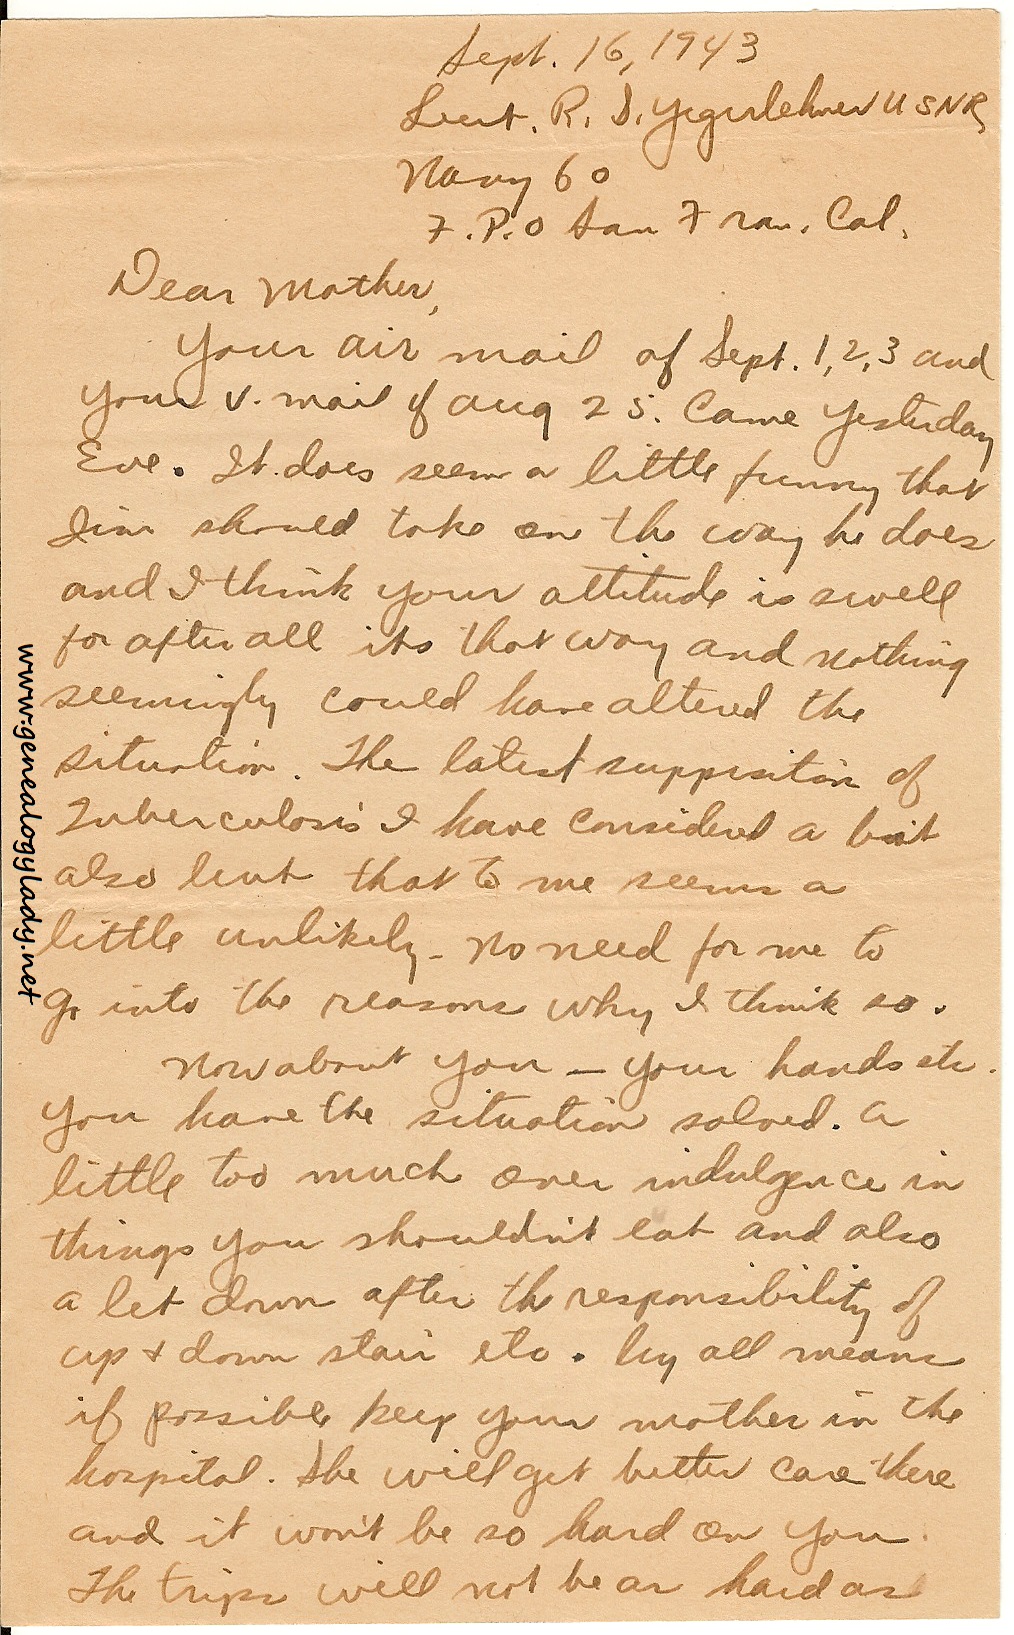 Sept. 16, 1943
Lieut. R. D. Yegerlehner USNR
Navy 60
F.P.O San Fran. Cal.
Dear Mother,
Your air mail of Sept. 1,2,3 and
your V. mail of aug 25. Came yesterday
Eve. It does seem a little funny that
Jim should take on the way he does
and I think your attitude is swell
for after all its that way and nothing
seemingly could have altered the
situation. The latest supposition of
Tuberculosis I have considered a bit
also but that to me seems a
little unlikely - no need for me to
go into the reasons why I think so.
Now about you — your hands etc.
you have the situation solved. a
little too much over indulgence in
things you shouldn't eat and also
a let down after the responsibility of
up & down stair etc. by all means
if possible keep your mother in the
hospital. She will get better care there
and it won't be so hard on you.
The trips will not be as hard as
www.genealogylady.net